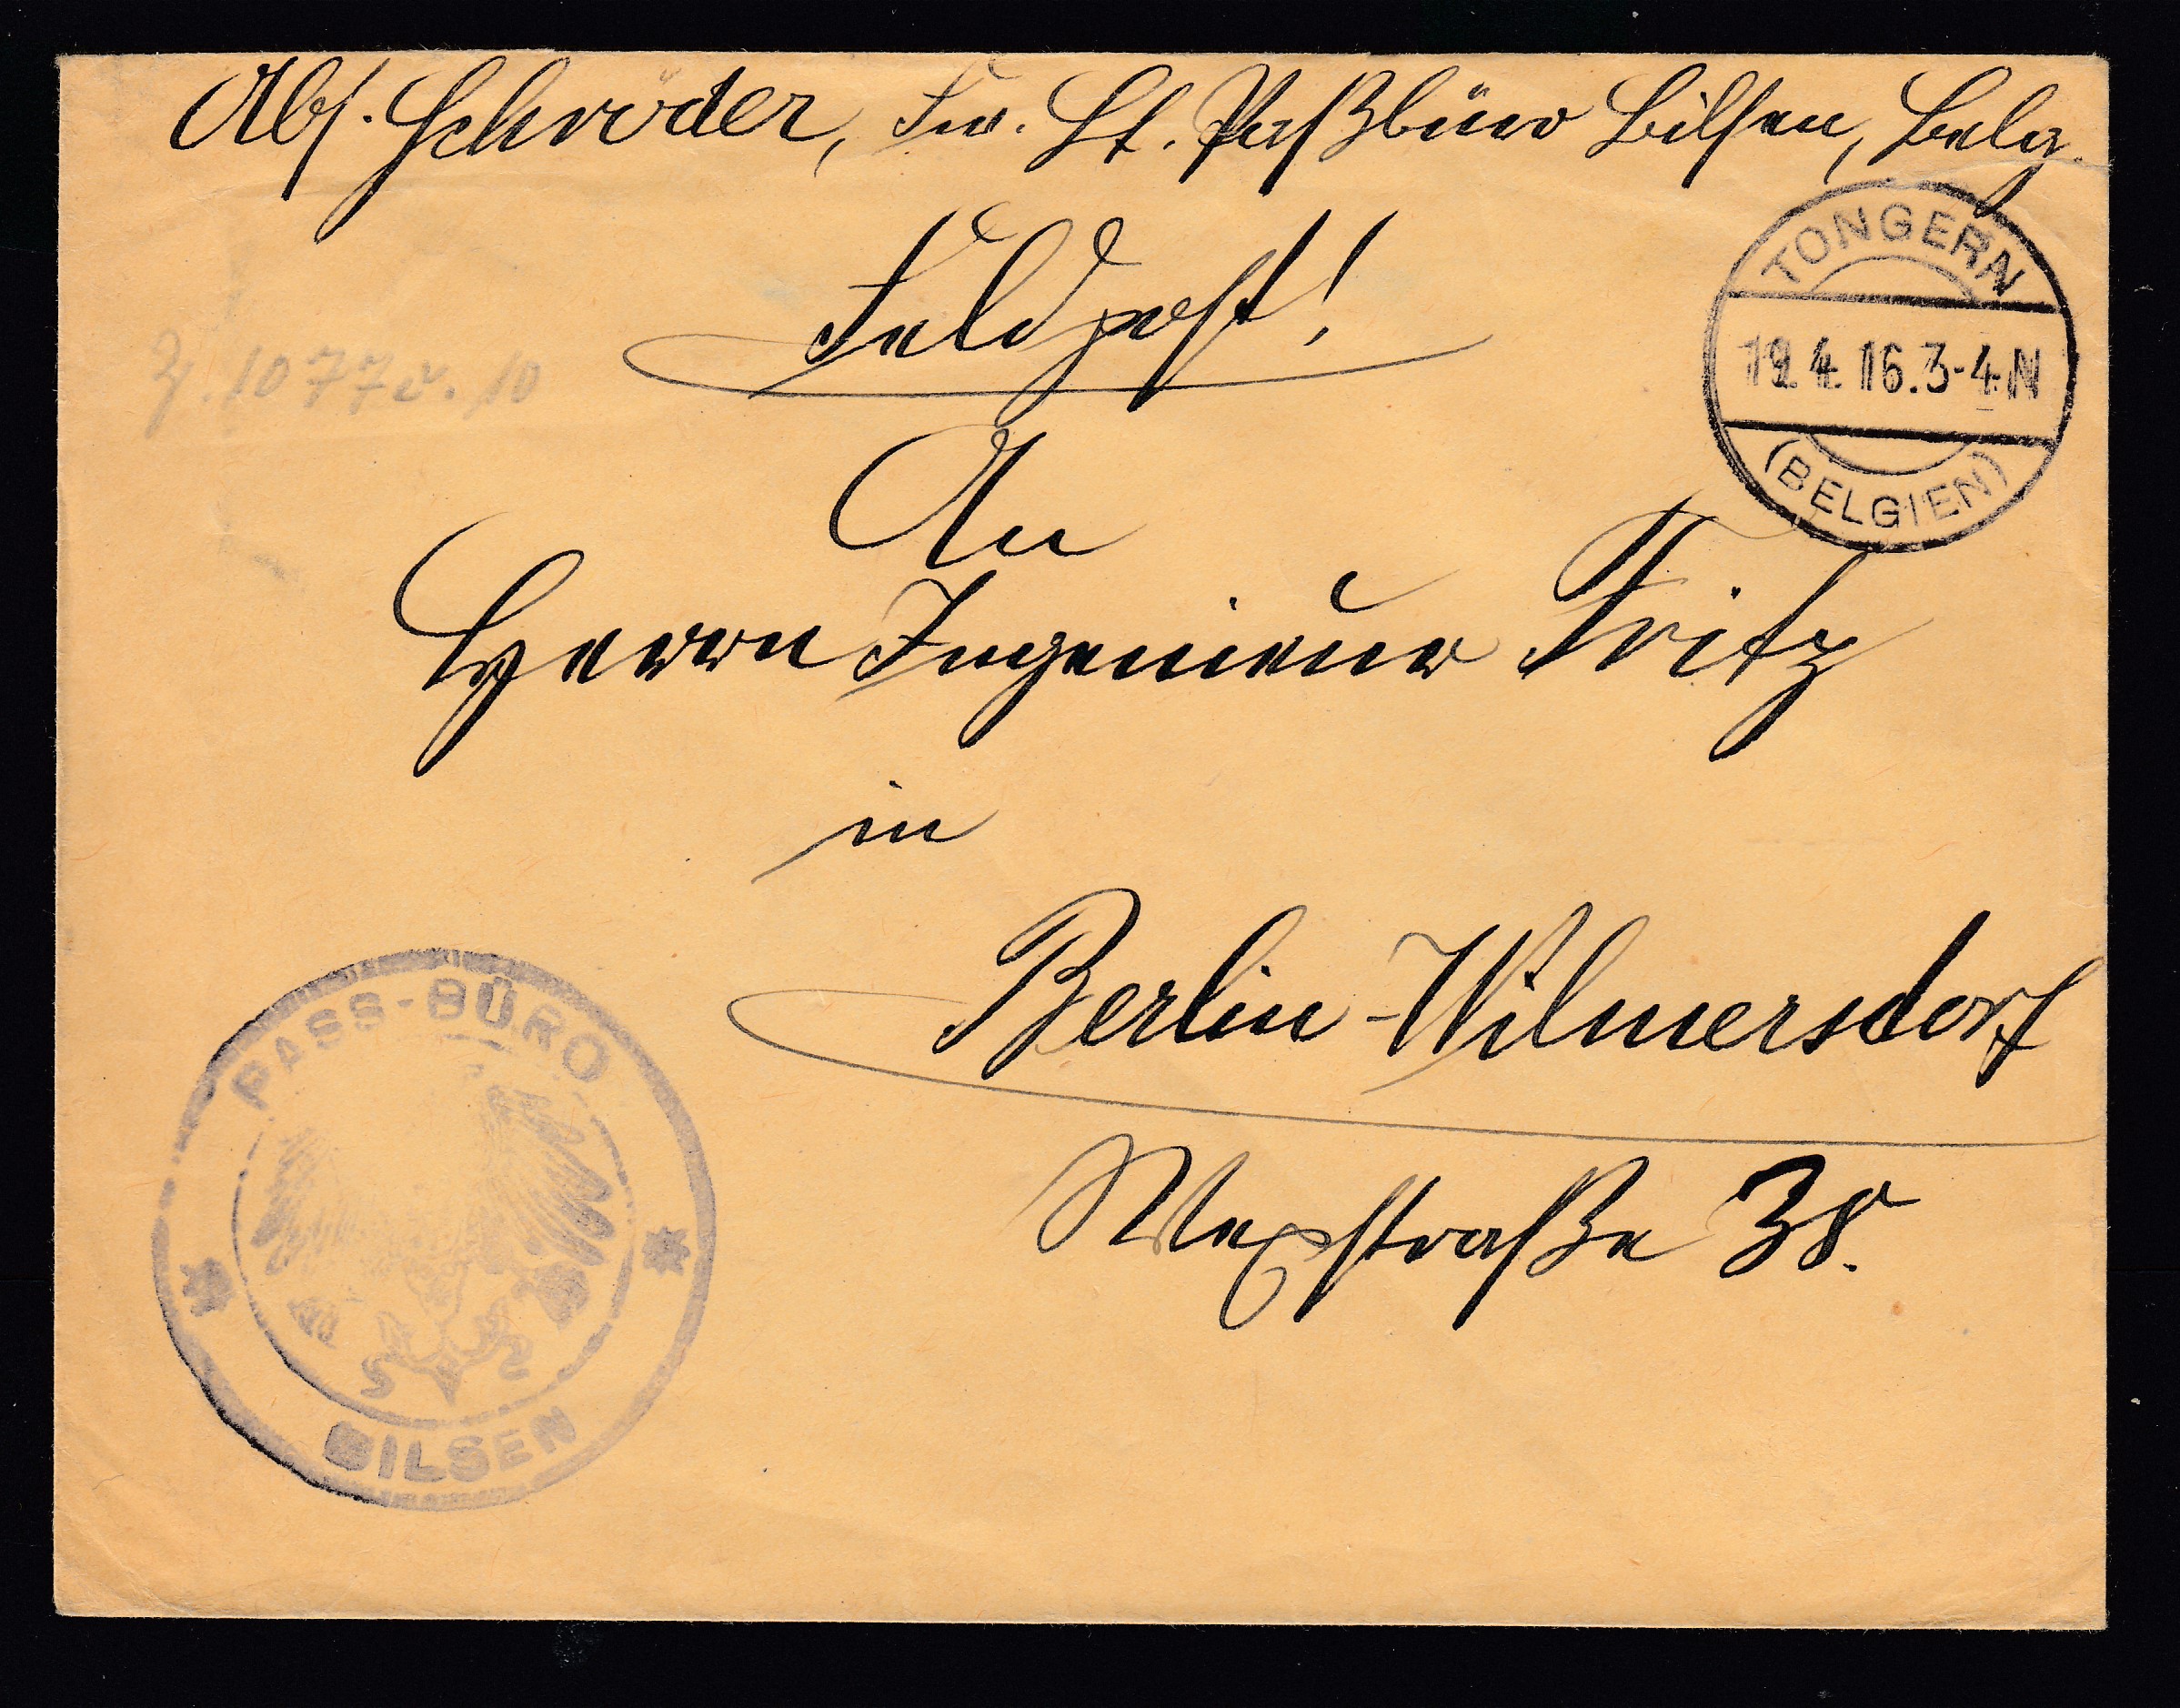 Abs. Schröder, Fw. Lt. Paßbüro Bilsen, Belg.
Feldpost!
TONGERN
19.4.16.3-4N
(BELGIEN)
An
Herrn Ingenieur Fritz
in
Berlin-Wilmersdorf
Wexstraße 38.
PASS-BÜRO
BILSEN